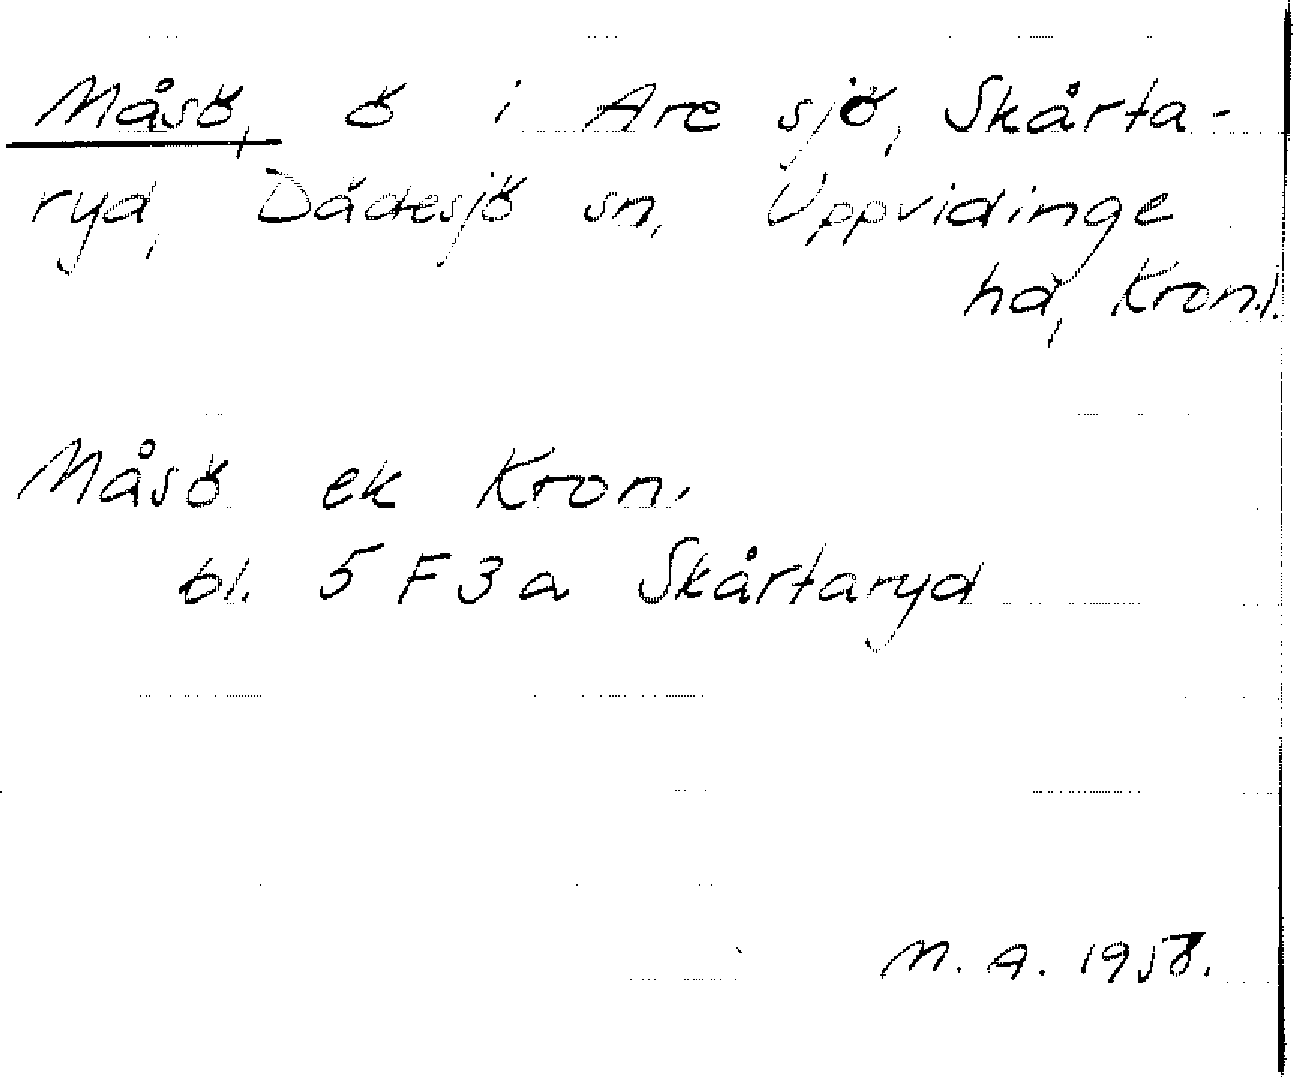 Måsö, ö i Are sjö, Skårta-
ryd, Dädesjö sn, Uppvidinge
hd, Kron.l.
Måsö ek Kron.
bl. 5 F 3 a Skårtaryd
M. A. 1958.